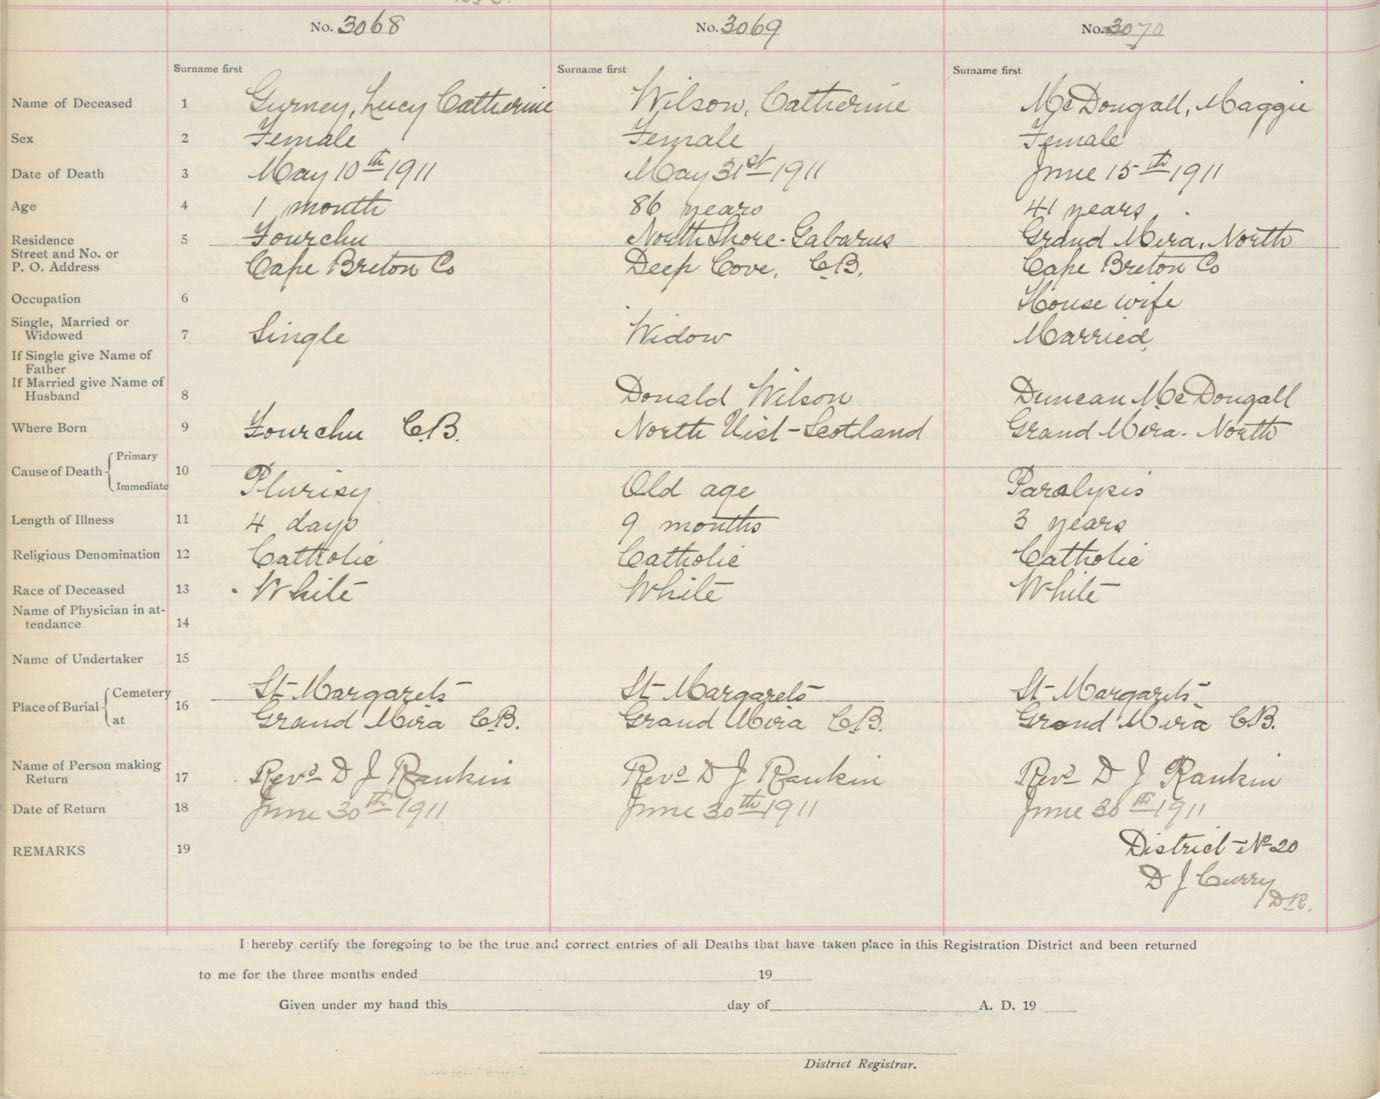 No. 3068 No. 3069 No. 3070
Surname first Surname first Surname first
Name of Deceased 1 Gurney, Lucy Catherine Wilson, Catherine McDougall, Maggie
Sex 2 Female Female Female
Date of Death 3 May 10th 1911 May 31st 1911 June 15th 1911
Age 4 1 month 86 years 41 years
Residence 5 Fourchu North Shore-Gabarus Grand Mira, North
Street and No. or
P. O. Address Cape Breton Co Deep Cove, C.B. Cape Breton Co
Occupation 6 House wife
Single, Married or
Widowed 7 Single Widow Married
If Single give Name of
Father
If Married give Name of
Husband 8 Donald Wilson Duncan McDougall
Where Born 9 Fourchu C.B. North Uist-Scotland Grand Mira. North
Cause of Death Primary
Immediate 10 Plurisy Old age Paralysis
Length of Illness 11 4 days 9 months 3 years
Religious Denomination 12 Catholic Catholic Catholic
Race of Deceased 13 White White White
Name of Physician in at-
tendance 14
Name of Undertaker 15
Place of Burial Cemetery 16 St Margarets St Margarets St Margarets
at Grand Mira C.B. Grand Mira C.B. Grand Mira C.B.
Name of Person making
Return 17 Revd D J Rankin Revd D J Rankin Revd D J Rankin
Date of Return 18 June 30th 1911 June 30th 1911 June 30th 1911
REMARKS 19 District No 20
D J Curry
D.R.
I hereby certify the foregoing to be the true and correct entries of all Deaths that have taken place in this Registration District and been returned
to me for the three months ended 19
Given under my hand this day of A. D. 19
District Registrar.